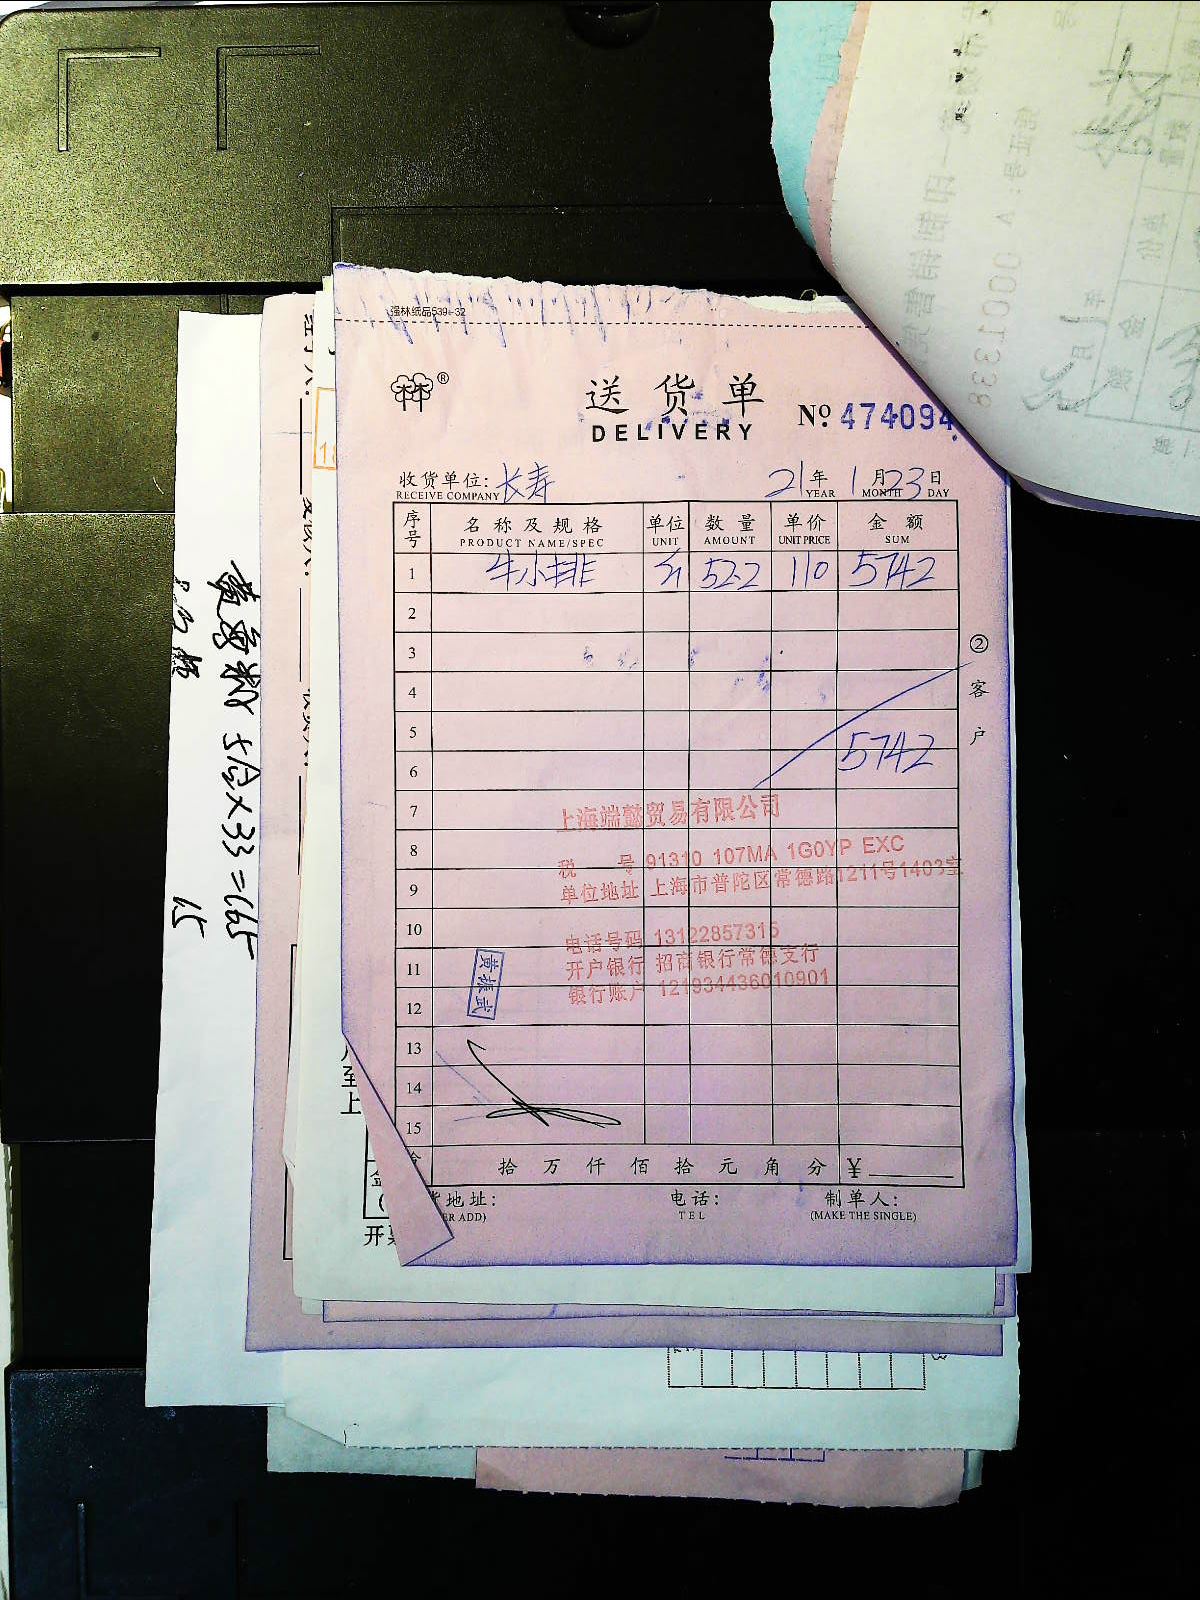 强林纸品539-32
®
送货单
DELIVERY
№ 474094
收货单位: 长寿 21年 1月23日
RECEIVE COMPANY YEAR MONTH DAY
序号 名称及规格 单位 数量 单价 金额
PRODUCT NAME/SPEC UNIT AMOUNT UNIT PRICE SUM
1 牛小排 斤 52.2 110 5742
2
3
4
5
6 5742
7
8
9
10
11
12
13
14
15
②客户
上海端懿贸易有限公司
税 号 91310 107MA 1G0YP EXC
单位地址 上海市普陀区常德路1211号1403室
电话号码 13122857315
开户银行 招商银行常德支行
银行账户 121934436010901
黄振武
拾 万 仟 佰 拾 元 角 分 ¥
地址: 电话: 制单人:
ER ADD) TEL (MAKE THE SINGLE)
至
上
开票
5包×33=165
15
0001338